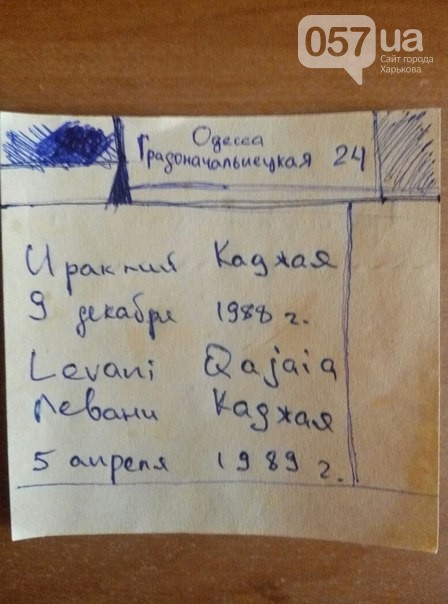 057ua
Сайт города
Харькова
Одесса
Градоначальницкая 24
Ираклий Каджая
9 декабря 1988 г.
Levani Qajaia
Левани Каджая
5 апреля 1989 г.